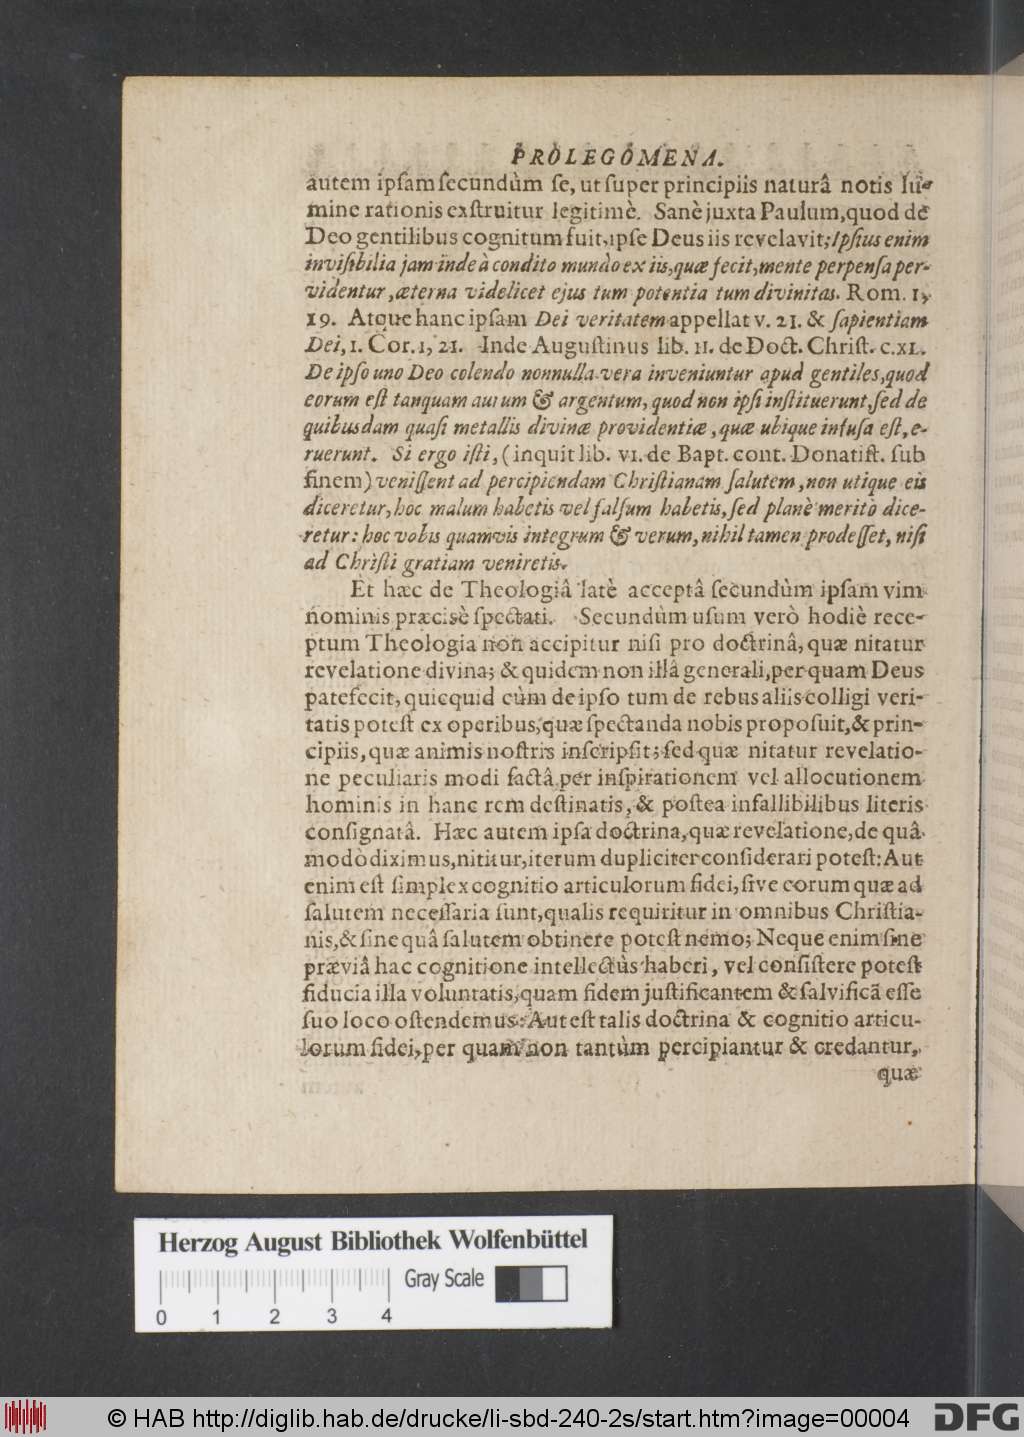 PROLEGOMENA.
autem ipſam ſecundùm ſe, ut ſuper principiis naturâ notis lu-
mine rationis exſtruitur legitimè. Sanè juxta Paulum, quod de
Deo gentilibus cognitum fuit, ipſe Deus iis revelavit; Ipſius enim
inviſibilia jam inde à condito mundo ex iis, quæ fecit, mente perpenſa per-
videntur, æterna videlicet ejus tum potentia tum divinitas. Rom. 1,
19. Atque hanc ipſam Dei veritatem appellat v. 21. & ſapientiam
Dei, 1. Cor. 1, 21. Inde Auguſtinus lib. II. de Doct. Chriſt. c. XL.
De ipſo uno Deo colendo nonnulla vera inveniuntur apud gentiles, quod
eorum eſt tanquam aurum & argentum, quod non ipſi inſtituerunt, ſed de
quibusdam quaſi metallis divinæ providentiæ, quæ ubique infuſa eſt, e-
ruerunt. Si ergo iſti, (inquit lib. VI. de Bapt. cont. Donatiſt. ſub
finem) veniſſent ad percipiendam Chriſtianam ſalutem, non utique eis
diceretur, hoc malum habetis vel falſum habetis, ſed planè meritò dice-
retur: hoc vobis quamvis integrum & verum, nihil tamen prodeſſet, niſi
ad Chriſti gratiam veniretis.
Et hæc de Theologiâ latè acceptâ ſecundùm ipſam vim
nominis præcisè ſpectati. Secundùm uſum verò hodiè rece-
ptum Theologia non accipitur niſi pro doctrinâ, quæ nitatur
revelatione divina; & quidem non illâ generali, per quam Deus
patefecit, quicquid cùm de ipſo tum de rebus aliis colligi veri-
tatis poteſt ex operibus, quæ ſpectanda nobis propoſuit, & prin-
cipiis, quæ animis noſtris inſcripſit; ſed quæ nitatur revelatio-
ne peculiaris modi factâ per inſpirationem vel allocutionem
hominis in hanc rem deſtinatis, & poſtea infallibilibus literis
conſignatâ. Hæc autem ipſa doctrina, quæ revelatione, de quâ
modò diximus, nititur, iterum dupliciter conſiderari poteſt: Aut
enim eſt ſimplex cognitio articulorum fidei, ſive eorum quæ ad
ſalutem neceſſaria ſunt, qualis requiritur in omnibus Chriſtia-
nis, & ſine quâ ſalutem obtinere poteſt nemo; Neque enim ſine
præviâ hac cognitione intellectùs haberi, vel conſiſtere poteſt
fiducia illa voluntatis, quam fidem juſtificantem & ſalvificã eſſe
ſuo loco oſtendemus: Aut eſt talis doctrina & cognitio articu-
lorum fidei, per quam non tantùm percipiantur & credantur,
quæ
Herzog August Bibliothek Wolfenbüttel
Gray Scale
0 1 2 3 4
© HAB http://diglib.hab.de/drucke/li-sbd-240-2s/start.htm?image=00004
DFG